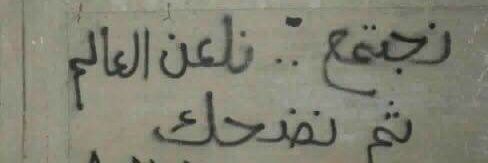 نجتمع .. نلعن العالم
ثم نضحك